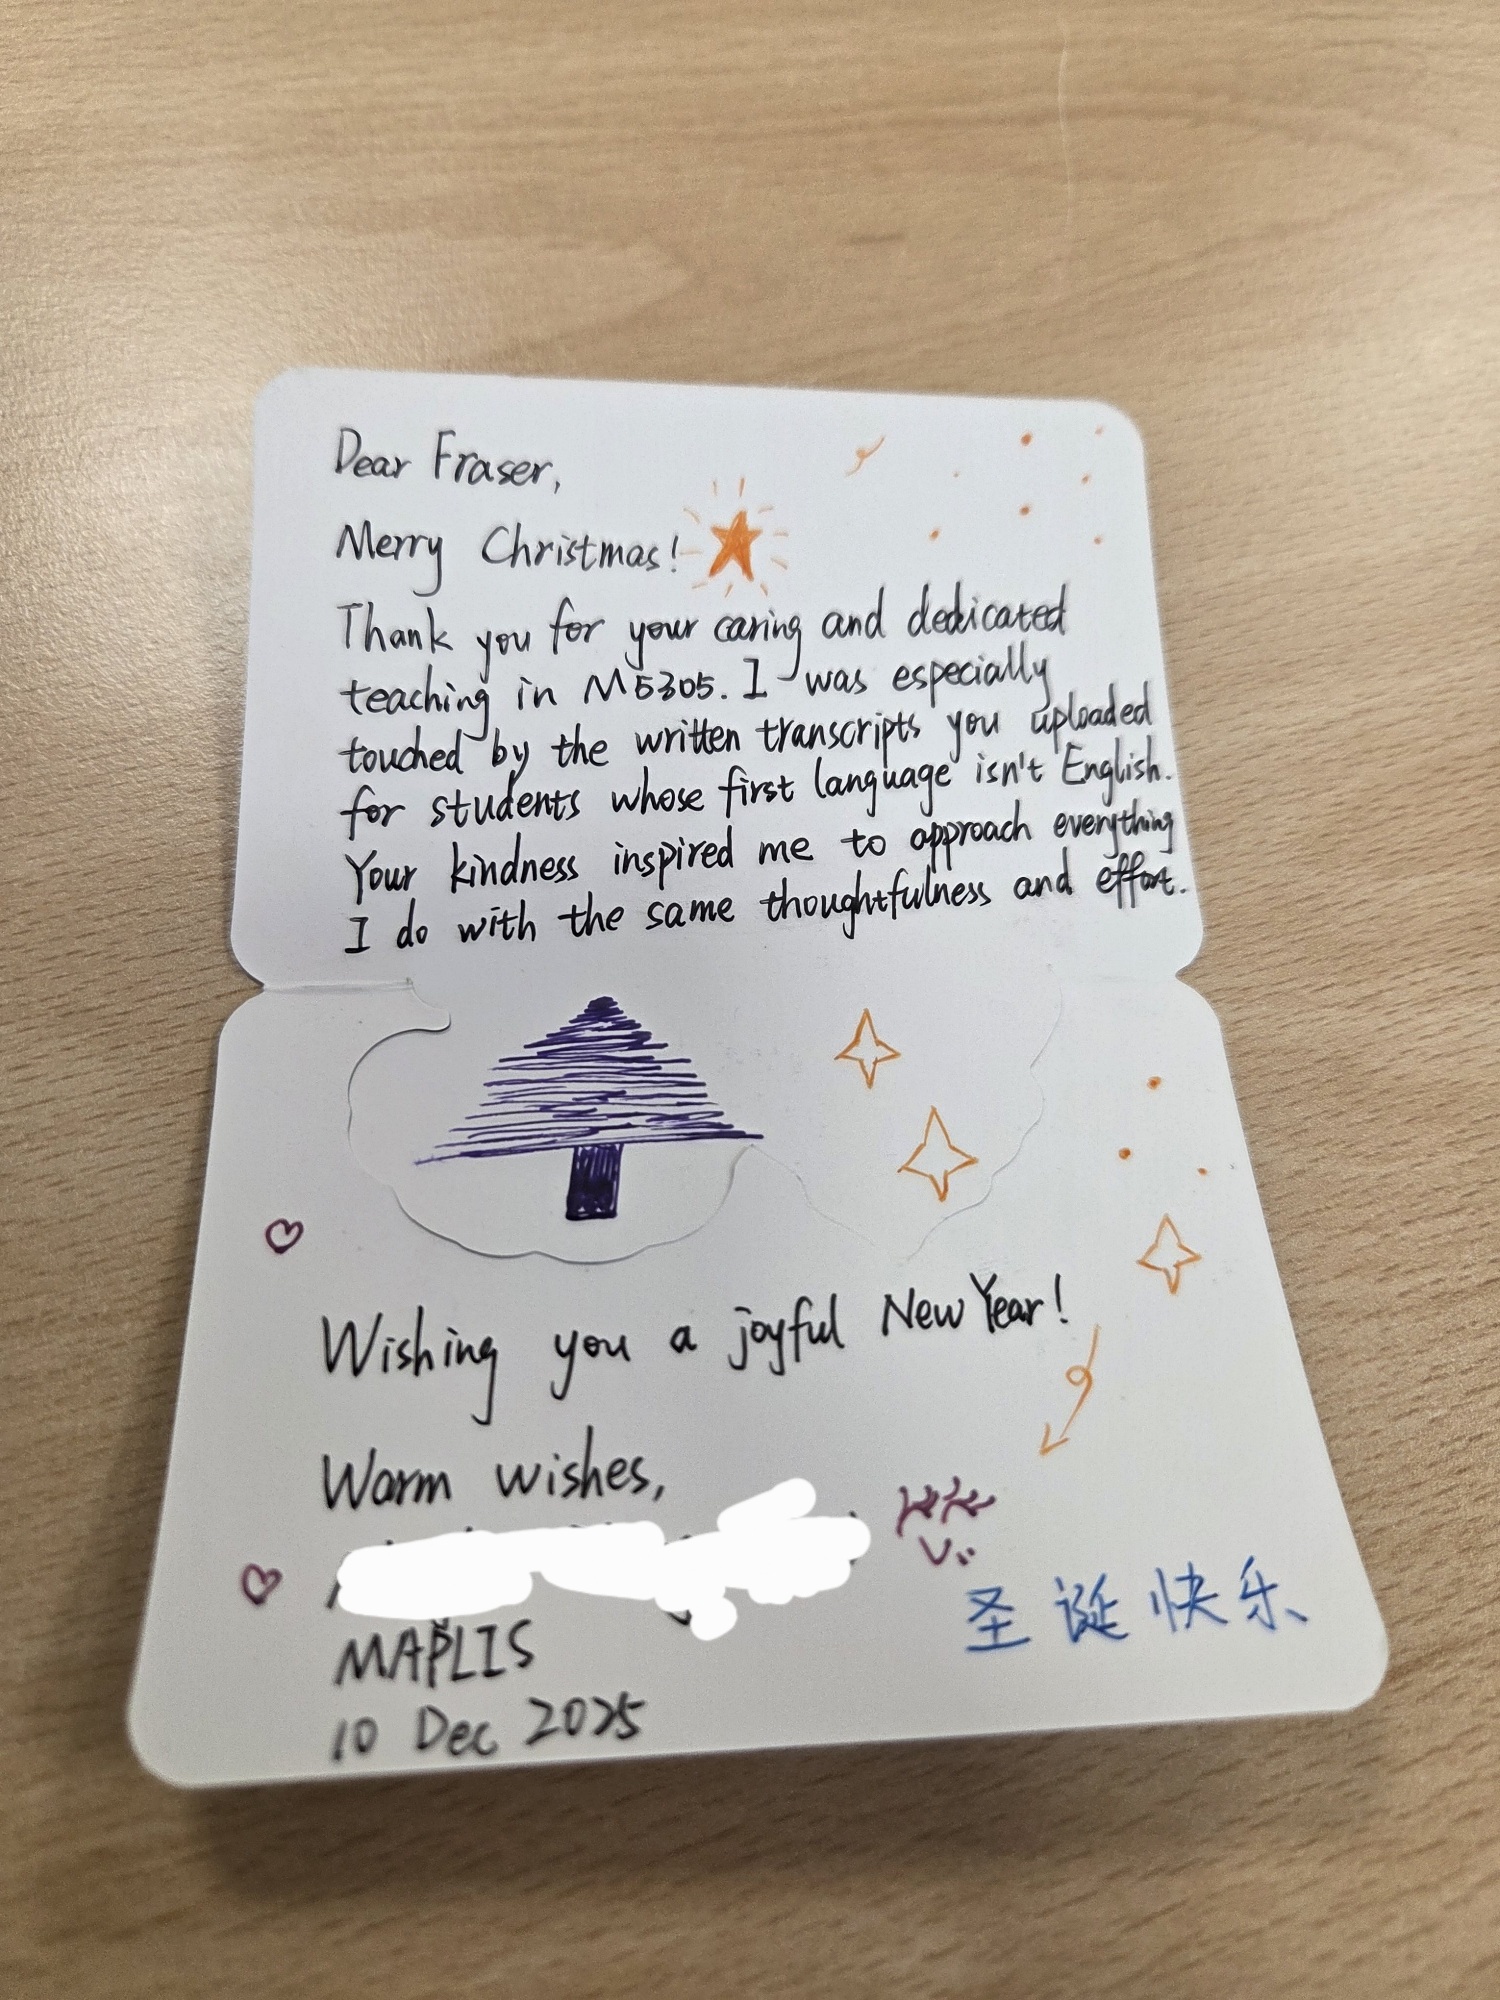 Dear Fraser,
Merry Christmas!
Thank you for your caring and dedicated
teaching in M5305. I was especially
touched by the written transcripts you uploaded
for students whose first language isn't English.
Your kindness inspired me to approach everything
I do with the same thoughtfulness and effort.
Wishing you a joyful New Year!
Warm wishes,
MAPLIS
10 Dec 2025
圣诞快乐